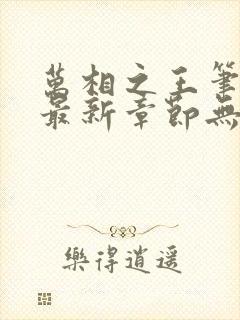 萬相之王筆
最新章節無
樂得逍遥